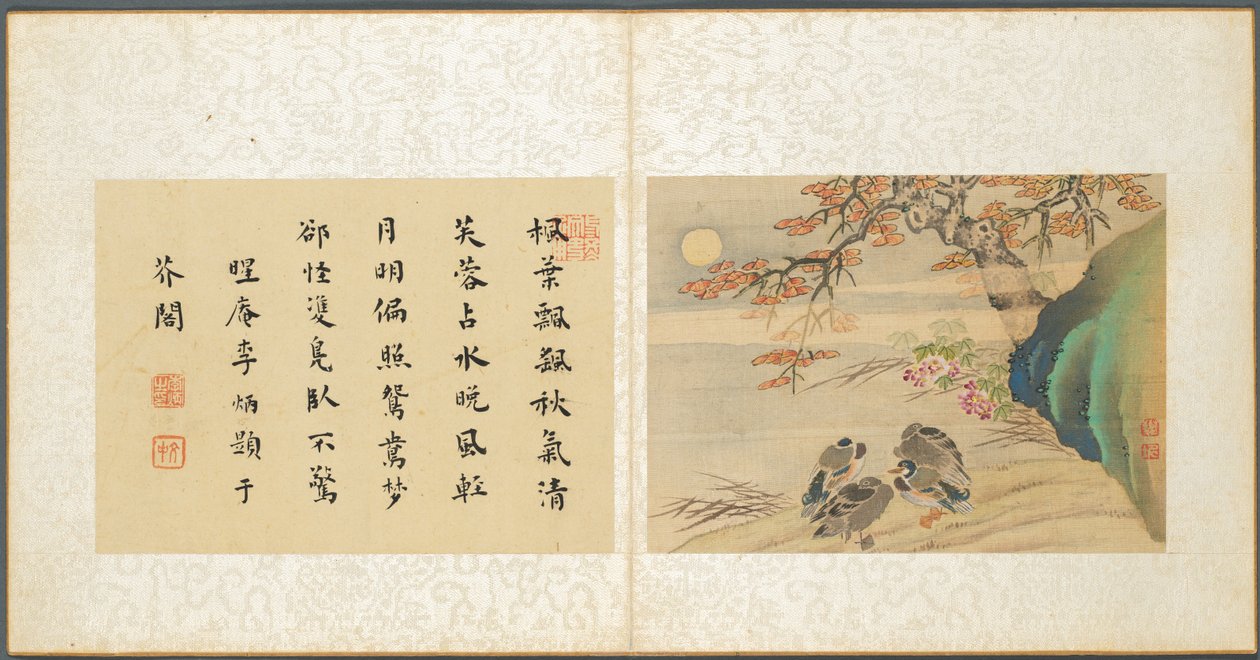 楓葉飄颻秋氣清
芙蓉占水晚風輕
月明偏照鴛鴦梦
郤怪雙鳧臥不驚
暒庵李炳題于
芥閣